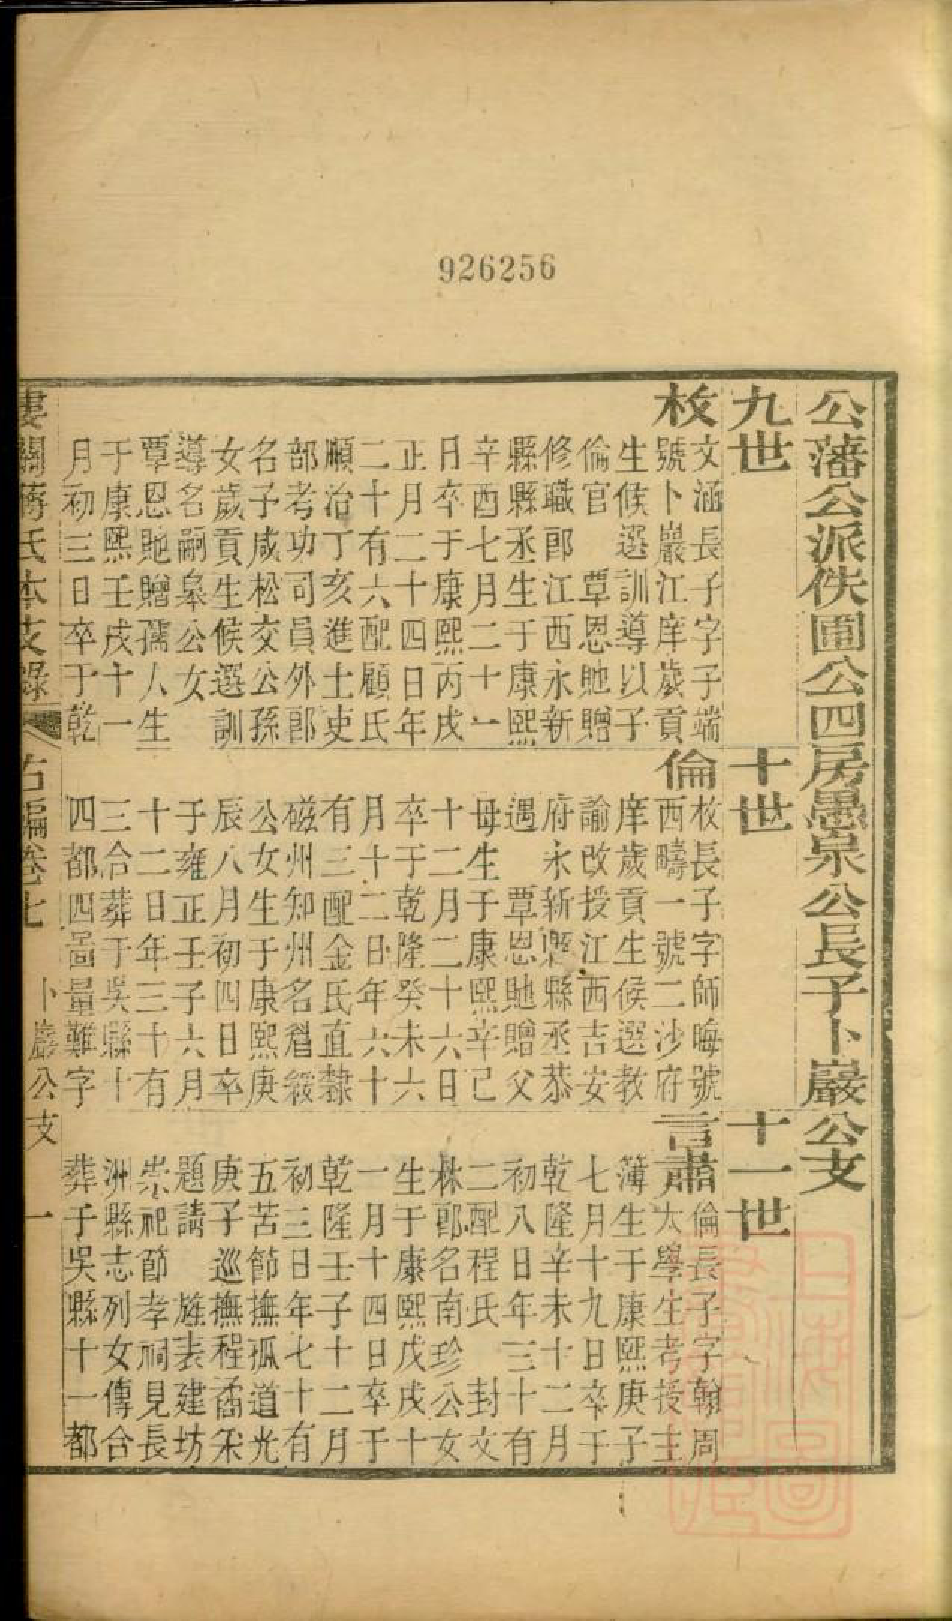 926256
公藩公派佚圃公四房愚泉公長子卜巖公支
九世
校
文涵長子字子端
號卜巖江庠歲貢
生候選訓導以子
倫官 覃恩貤贈
修職郎江西永新
縣縣丞生于康熙
辛酉七月二十一
日卒于康熙丙戌
正月二十四日年
二十有六配顧氏
順治丁亥進士吏
部考功司員外郎
名子咸松交公孫
女歲貢生候選訓
導名嗣皋公女
覃恩貤贈孺人生
于康熙壬戌十一
月初三日卒于乾
十世
倫
校長子字師晦號
西疇一號二沙府
庠歲貢生候選教
諭改授江西吉安
府永新縣縣丞恭
遇 覃恩貤贈父
母生于康熙辛已
十二月二十六日
卒于乾隆癸未六
月十二日年六十
有三配金氏直隸
磁州知州名㬱緩
公女生于康熙庚
辰八月初四日卒
于雍正壬子六月
十二日年三十有
三合葬于吳縣十
四都四啚量難字
十一世
言肅
倫長子字翰周
太學生考授主
簿生于康熙庚子
七月十九日卒于
乾隆辛未十二月
初八日年三十有
二配程氏 封文
林郎名南珍公女
生于康熙戊戌十
一月十四日卒于
乾隆壬子十二月
初三日年七十有
五苦節撫孤道光
庚子巡撫程矞采
題請 旌表建坊
崇祀節孝祠見長
洲縣志列女傳合
葬于吳縣十一都
婁關蔣氏本支錄 右編卷七 卜巖公支 一